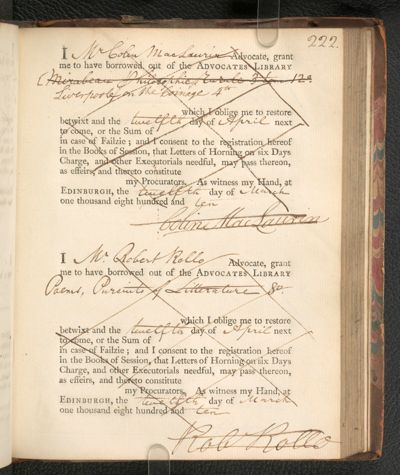 222.
I Mr Colin MacLaurin Advocate, grant
me to have borrowed out of the ADVOCATES LIBRARY
(Mirabeau, Philosophie 12o
Liverpool on the Coinage 4to
which I oblige me to restore
betwixt and the twelfth day of April next
to come, or the Sum of
in case of Failzie; and I consent to the registration hereof
in the Books of Session, that Letters of Horning on six Days
Charge, and other Executorials needful, may pass thereon,
as effeirs, and thereto constitute
my Procurators. As witness my Hand, at
EDINBURGH, the twelfth day of March
one thousand eight hundred and ten
Colin MacLaurin
I Mr Robert Rollo Advocate, grant
me to have borrowed out of the ADVOCATES LIBRARY
Poems, Pursuits of Litterature 8o.
which I oblige me to restore
betwixt and the twelfth day of April next
to come, or the Sum of
in case of Failzie; and I consent to the registration hereof
in the Books of Session, that Letters of Horning on six Days
Charge, and other Executorials needful, may pass thereon,
as effeirs, and thereto constitute
my Procurators. As witness my Hand, at
EDINBURGH, the twelfth day of March
one thousand eight hundred and ten
Robt Rollo